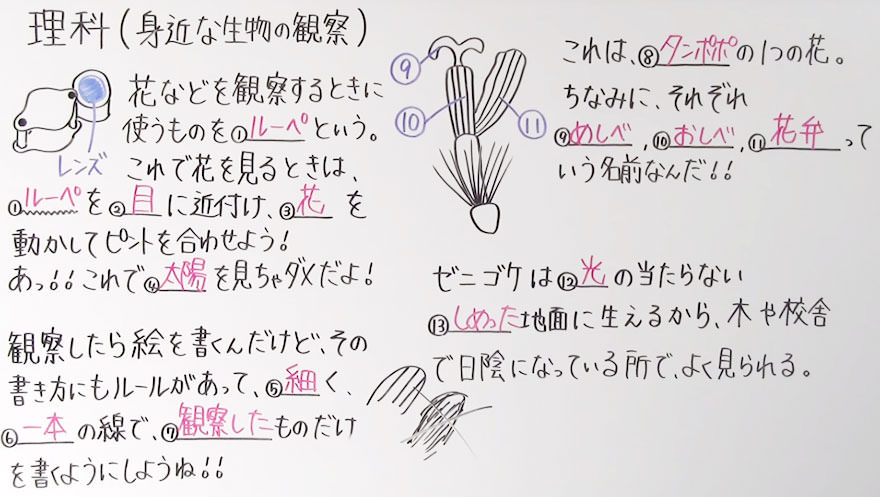 理科(身近な生物の観察)
花などを観察するときに
使うものを①ルーペという。
レンズ
これで花を見るときは、
①ルーペを②目に近付け、③花を
動かしてピントを合わせよう!
あっ!!これで④太陽を見ちゃダメだよ!
観察したら絵を書くんだけど、その
書き方にもルールがあって、⑤細く、
⑥一本の線で、⑦観察したものだけ
を書くようにしようね!!
⑨
⑩
⑪
これは、⑧タンポポの1つの花。
ちなみに、それぞれ
⑨めしべ,⑩おしべ,⑪花弁って
いう名前なんだ!!
ゼニゴケは⑫光の当たらない
⑬しめった地面に生えるから、木や校舎
で日陰になっている所で、よく見られる。